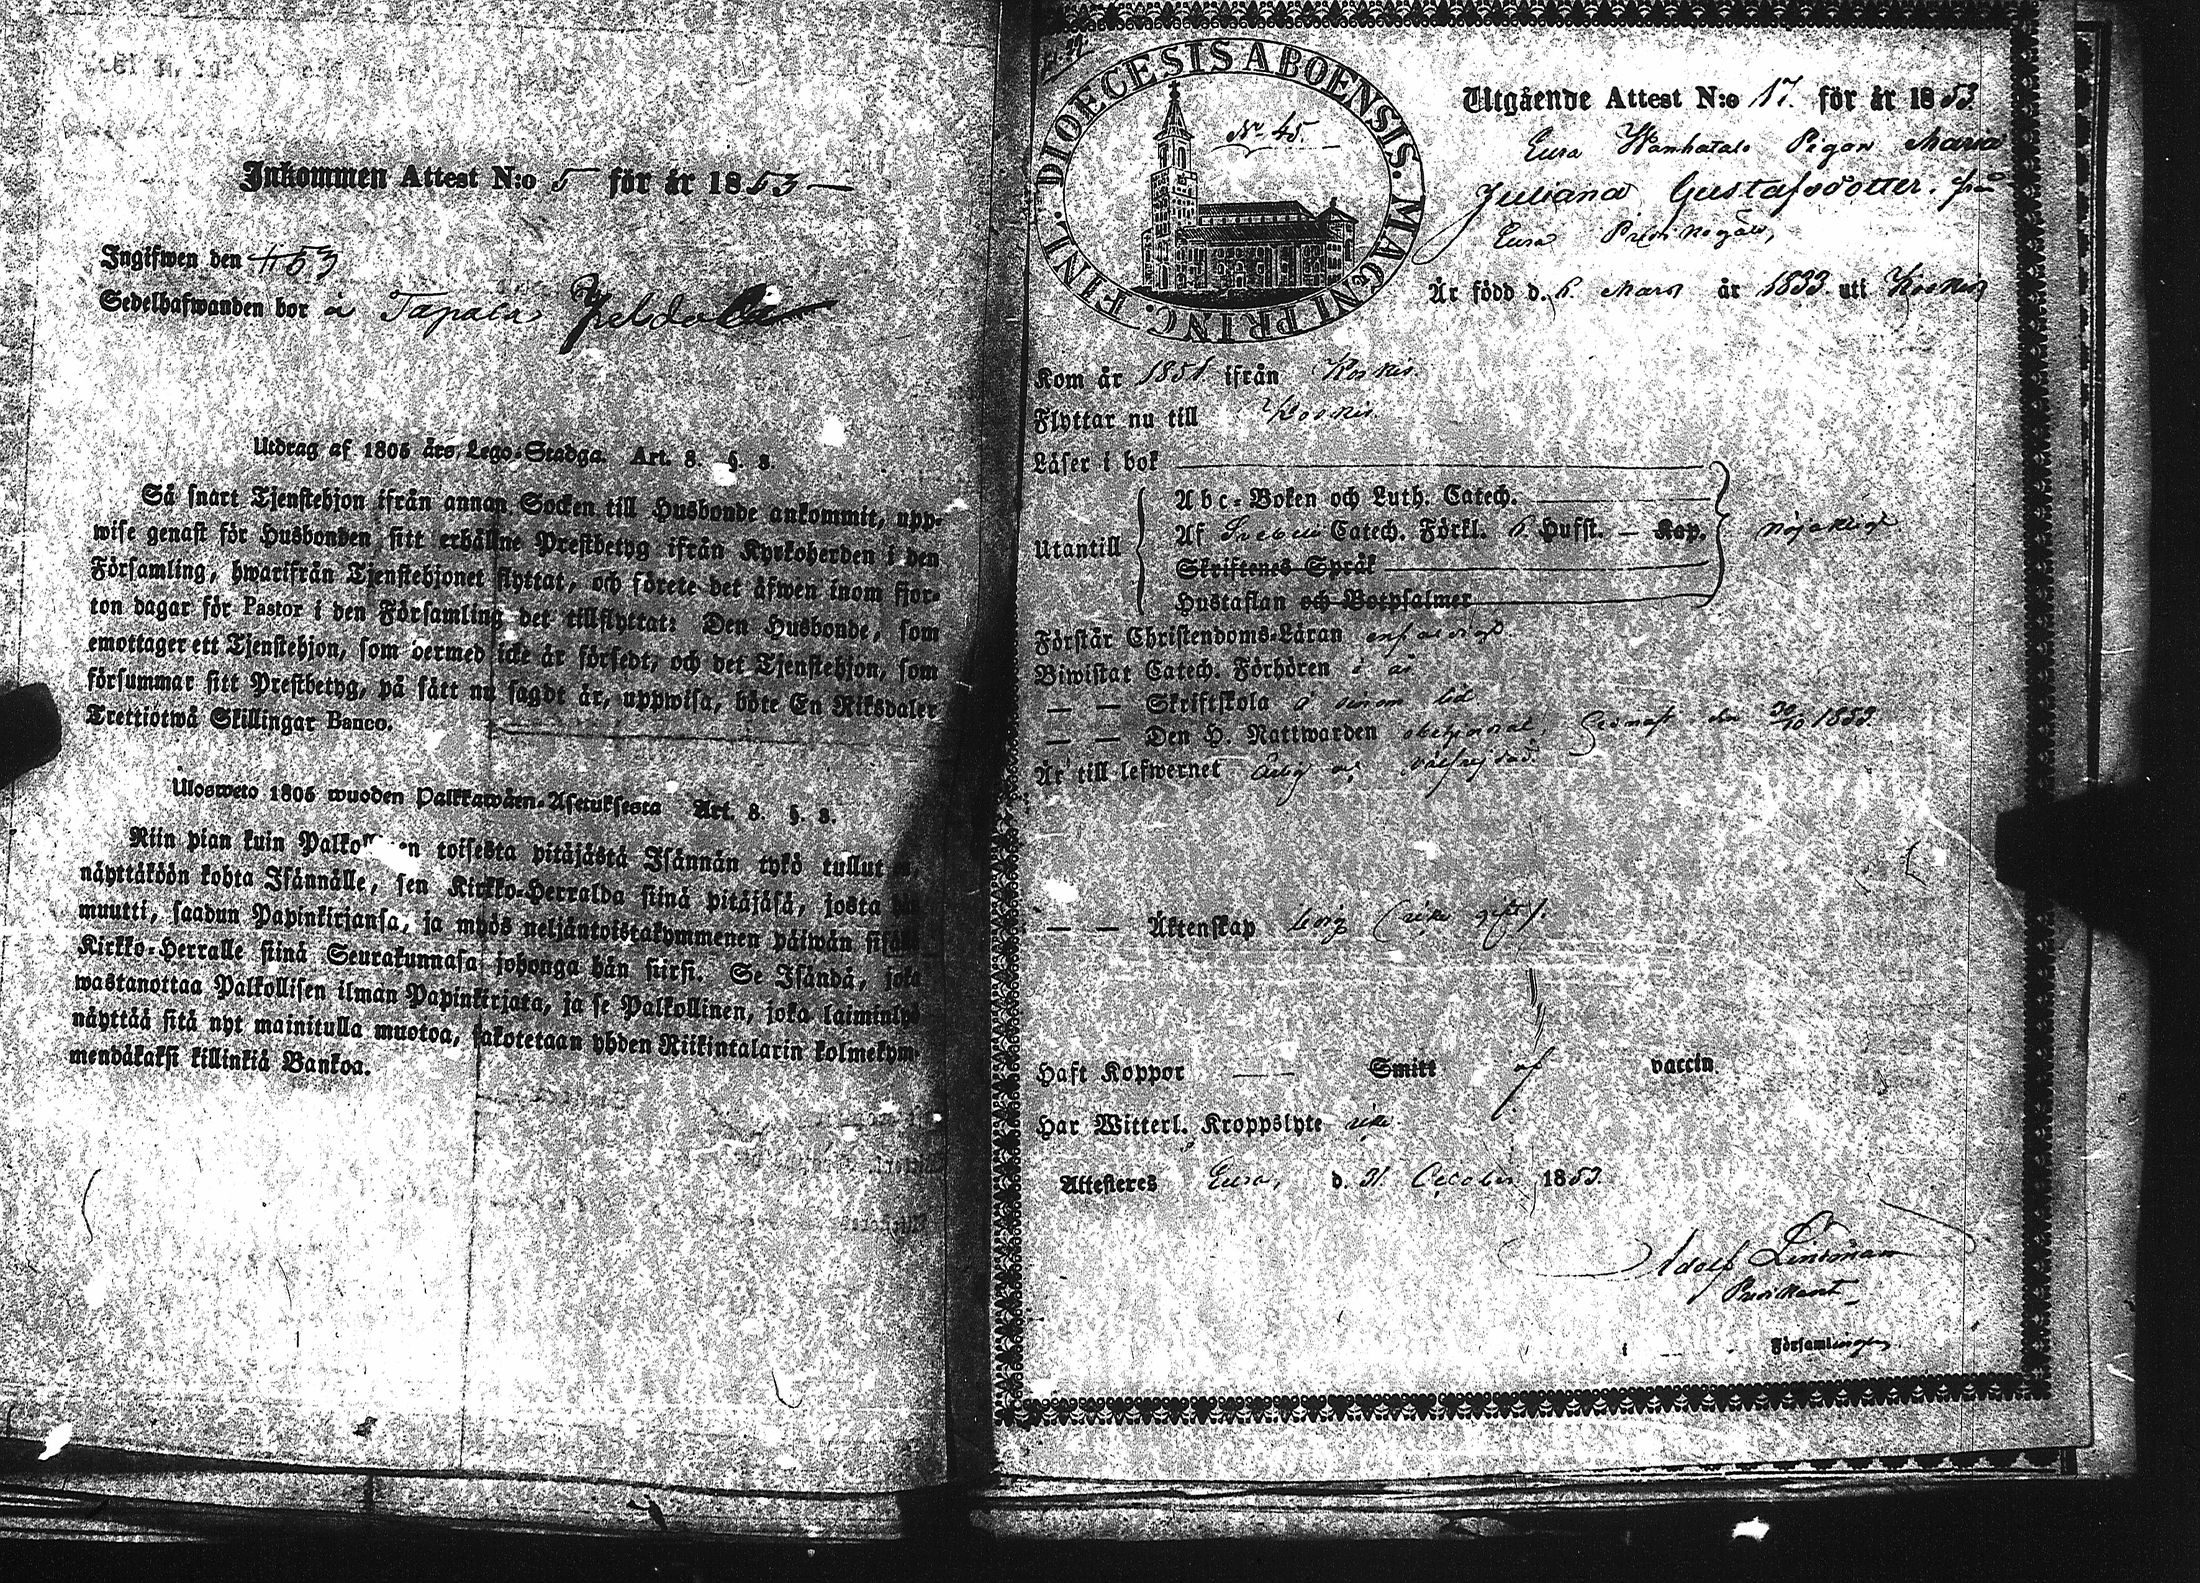 Inkommen Attest N:o 5 för år 1853
Ingifwen den
Sedelhafwanden bor å Tapala
Utdrag af 1805 års Lego-Stadga. Art. 8. §. 3.
Så snart Tjenstehjon ifrån annan Socken till Husbonde ankommit, upp-
wise genast för Husbonden sitt erhållne Prestbetyg ifrån Kyrkoherden i den
Församling, hwarifrån Tjenstehjonet flyttat, och förete det äfwen inom fjor-
ton dagar för Pastor i den Församling det tillflyttat: Den Husbonde, som
emottager ett Tjenstehjon, som dermed icke är försedt, och det Tjenstehjon, som
försummar sitt Prestbetyg, på sätt nu sagdt är, uppwisa, böte En Riksdaler
Trettiotwå Skillingar Banco.
Ulosweto 1805 wuoden Palkkawäen-Asetuksesta Art. 8. §. 3.
Niin pian kuin toisesta pitäjästä Isännän tykö tullut
näyttäköön kohta Isännälle, sen Kirkko-Herralda siinä pitäjäsä, josta
muutti, saadun Papinkirjansa, ja myös neljäntoistakymmenen päiwän
Kirkko-Herralle siinä Seurakunnasa johonga hän siirsi. Se Isändä, joka
wastanottaa Palkollisen ilman Papinkirjata, ja se Palkollinen, joka laiminlyö
näyttää sitä nyt mainitulla muotoa, sakotetaan yhden Riikintalarin kolmekym-
mendäkaksi killinkiä Bankoa.
FINL. DIOECESIS ABOENSIS. MAGNI PRINC.
N:o 45.
Utgående Attest N:o 17. för år 1853.
Eura Pigan Maria
Juliana Gustafsdotter. från
Eura
Är född d. 6. Mars år 1833. uti Koskis
Kom år 1851 ifrån Koskis.
Flyttar nu till Koskis.
Läser i bok
Utantill
Abc-Boken och Luth. Catech.
Af Svebeli Catech. Förkl. 6 Hufst. — Kap.
Skriftenes Språk
Hustaflan och Botpsalmer
nöjaktigt
Förstår Christendoms-Läran enfaldigt
Biwistat Catech. Förhören i år
— — Skriftskola å sinom tid
— — Den H. Nattwarden obehindrad, senast den 30/10 1853.
Är till lefwernet ärlig och välfrejdad.
— — Äktenskap ledig (icke gift).
Haft Koppor — Smitt af vaccin
Har Witterl. Kroppslyte icke
Attesteres Eura, d. 31. October 1853.
Adolf Lindman
Predikant
i Församlingen